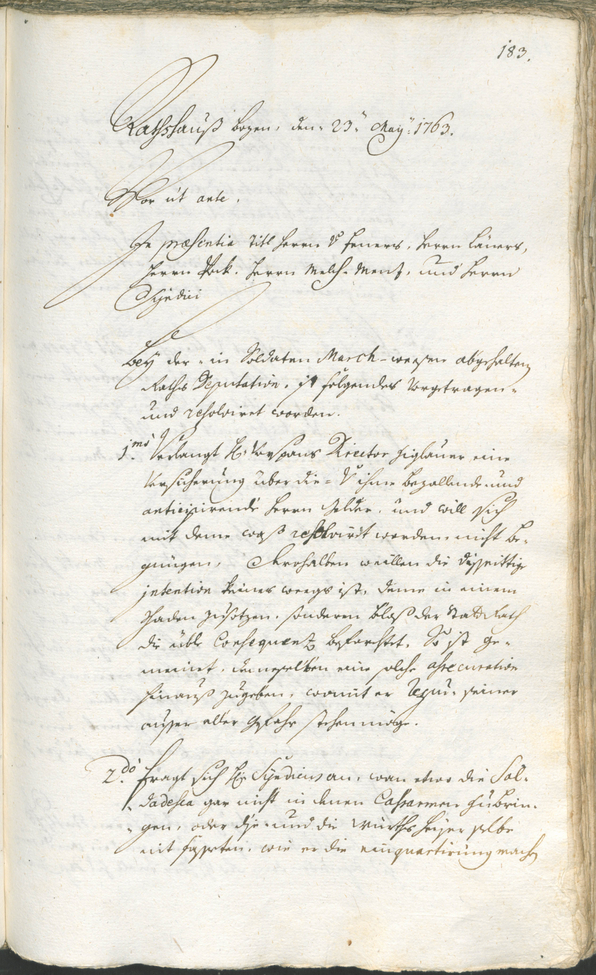 183.
Rathshauß bozen, den 23. May 1763.
Vor ut ante.
In præsentia titl herrn v feners, herrn
herrn herrn Melch: Menz, und herrn
Syndici
bey der in Soldaten March-weesen abgehalten
Raths Deputation, ist folgendes vorgetragen
und resolviret worden.
1mo Verlangt H: Vorspans Director Ziglauer eine
Versicherung über die v ihme bezallende und
anticipirende herrn gelder, und will sich
mit deme waß resolvirt worden nicht be-
gnüegen, weillen die disseittige
intention keines weegs ist, deme in einem
schaden zusetzen, sonderen bloß der StattRath
die üble Consequenz beforchtet, So ist ge-
meinet, demeselben eine solche assecuration
hinauß zugeben, womit er seiner
ausser aller gefahr stehen möge.
2do fragt sich Hr Syndicus an, wan etwo die Sol-
dadesca gar nicht in denen Casarmen zubrin-
gen, oder und die würthsheiser selbe
nit fasseten, wie er die einquartirung mach